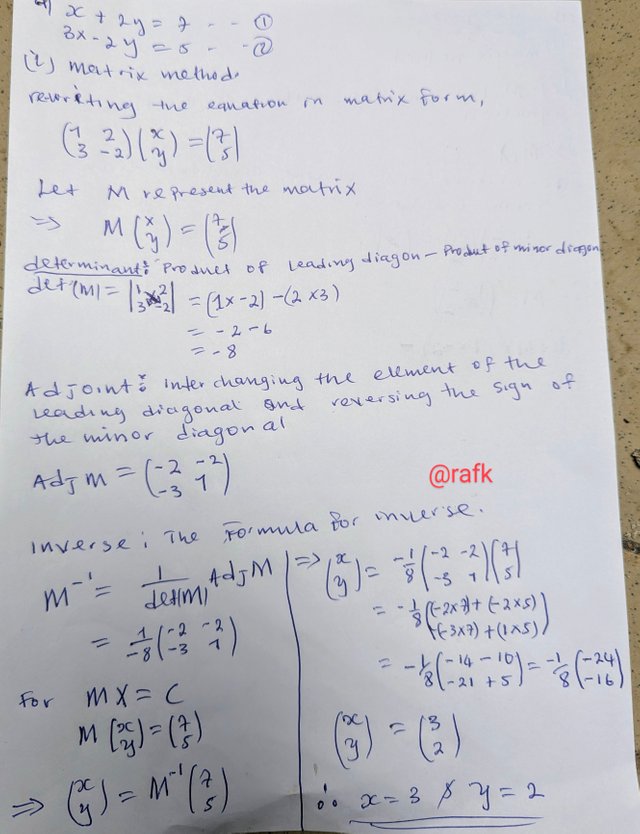 x + 2y = 7 - - ①
3x - 2y = 5 - - ②
(i) matrix method.
rewriting the equation in matrix form,
(1 2
3 -2)(x
y) = (7
5)
Let M represent the matrix
=> M(x
y) = (7
5)
determinant: Product of leading diagon - Product of minor diagon
det(M) = |1 2
3 -2| = (1x-2) - (2x3)
= -2 - 6
= -8
Adjoint: interchanging the element of the
leading diagonal and reversing the sign of
the minor diagonal
Adj M = (-2 -2
-3 1)
@rafk
inverse: The Formula for inverse.
M⁻¹ = 1/det(M) Adj M
= 1/-8 (-2 -2
-3 1)
For MX = C
M(x
y) = (7
5)
=> (x
y) = M⁻¹(7
5)
=> (x
y) = -1/8 (-2 -2
-3 1)(7
5)
= -1/8 ((-2x7)+(-2x5)
(-3x7)+(1x5))
= -1/8 (-14 - 10
-21 + 5) = -1/8 (-24
-16)
(x
y) = (3
2)
∴ x = 3 & y = 2